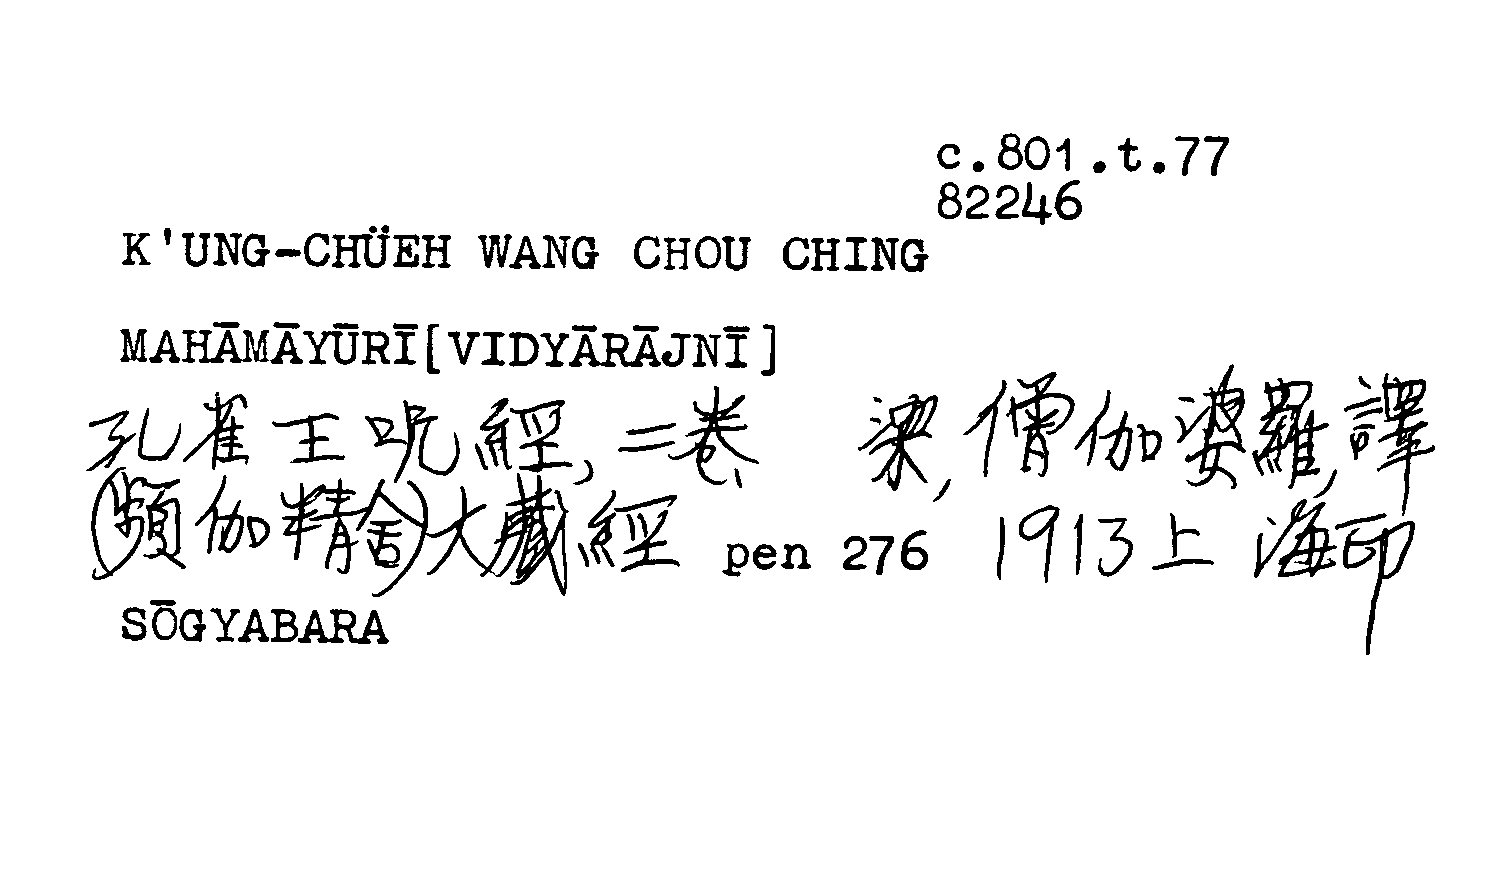 c.801.t.77
82246
K'UNG-CHÜEH WANG CHOU CHING
MAHĀMĀYŪRĪ[VIDYĀRĀJNĪ]
孔雀王呪經,二卷、 梁,僧伽婆羅,譯
(頻伽精舍)大藏經 pen 276 1913上海印
SŌGYABARA